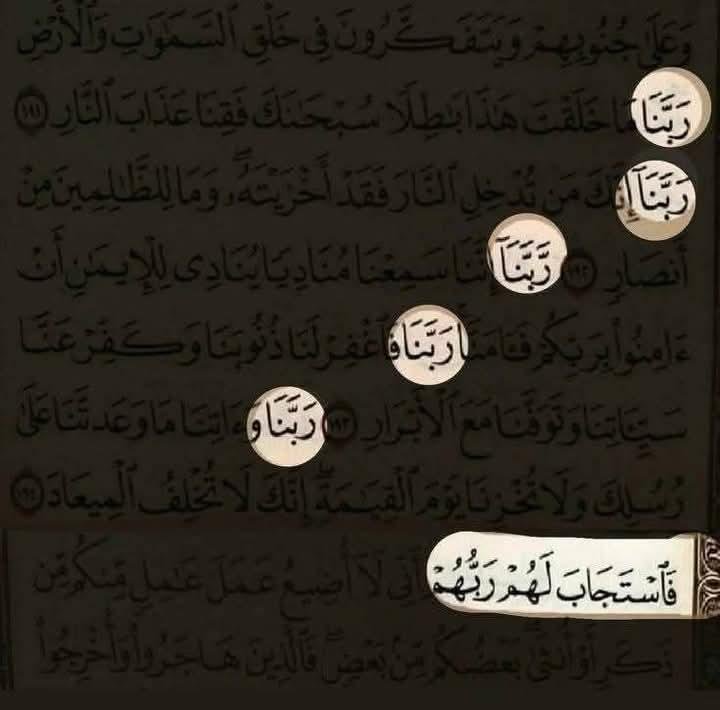 وَعَلَىٰ جُنُوبِهِمْ وَيَتَفَكَّرُونَ فِي خَلْقِ ٱلسَّمَٰوَٰتِ وَٱلْأَرْضِ
رَبَّنَا مَا خَلَقْتَ هَٰذَا بَٰطِلًا سُبْحَٰنَكَ فَقِنَا عَذَابَ ٱلنَّارِ ١٩١
رَبَّنَآ إِنَّكَ مَن تُدْخِلِ ٱلنَّارَ فَقَدْ أَخْزَيْتَهُۥ ۖ وَمَا لِلظَّٰلِمِينَ مِنْ
أَنصَارٍ ١٩٢ رَّبَّنَآ إِنَّنَا سَمِعْنَا مُنَادِيًا يُنَادِى لِلْإِيمَٰنِ أَنْ
ءَامِنُوا۟ بِرَبِّكُمْ فَـَٔامَنَّا ۚ رَبَّنَا فَٱغْفِرْ لَنَا ذُنُوبَنَا وَكَفِّرْ عَنَّا
سَيِّـَٔاتِنَا وَتَوَفَّنَا مَعَ ٱلْأَبْرَارِ ١٩٣ رَبَّنَا وَءَاتِنَا مَا وَعَدتَّنَا عَلَىٰ
رُسُلِكَ وَلَا تُخْزِنَا يَوْمَ ٱلْقِيَٰمَةِ ۗ إِنَّكَ لَا تُخْلِفُ ٱلْمِيعَادَ ١٩٤
فَٱسْتَجَابَ لَهُمْ رَبُّهُمْ أَنِّى لَآ أُضِيعُ عَمَلَ عَٰمِلٍ مِّنكُم مِّن
ذَكَرٍ أَوْ أُنثَىٰ ۖ بَعْضُكُم مِّنۢ بَعْضٍ ۖ فَٱلَّذِينَ هَاجَرُوا۟ وَأُخْرِجُوا۟